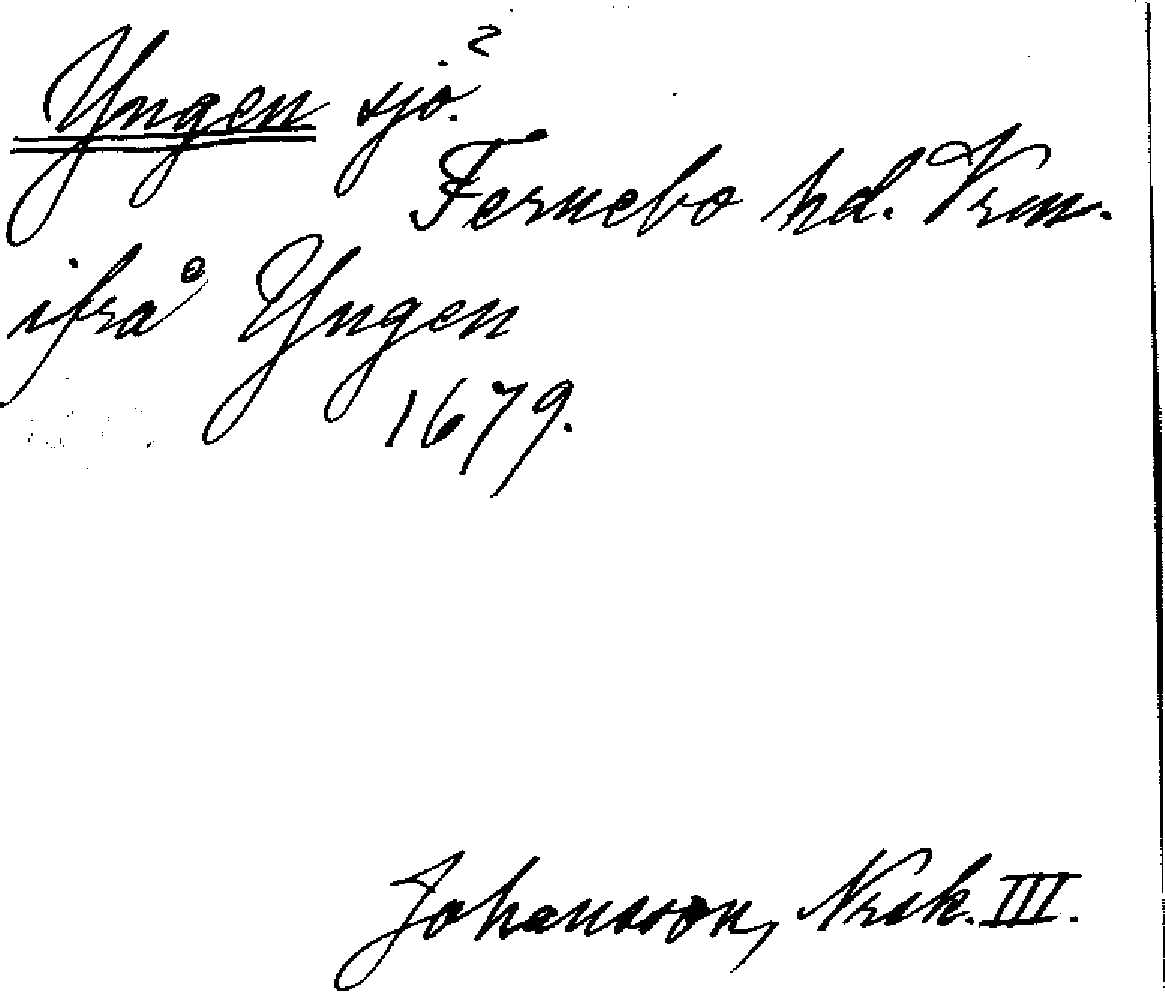 Yngen sjö.
Fernebo hd. Vrm.
ifrå Yngen
1679.
Johansson, Nrsk. III.